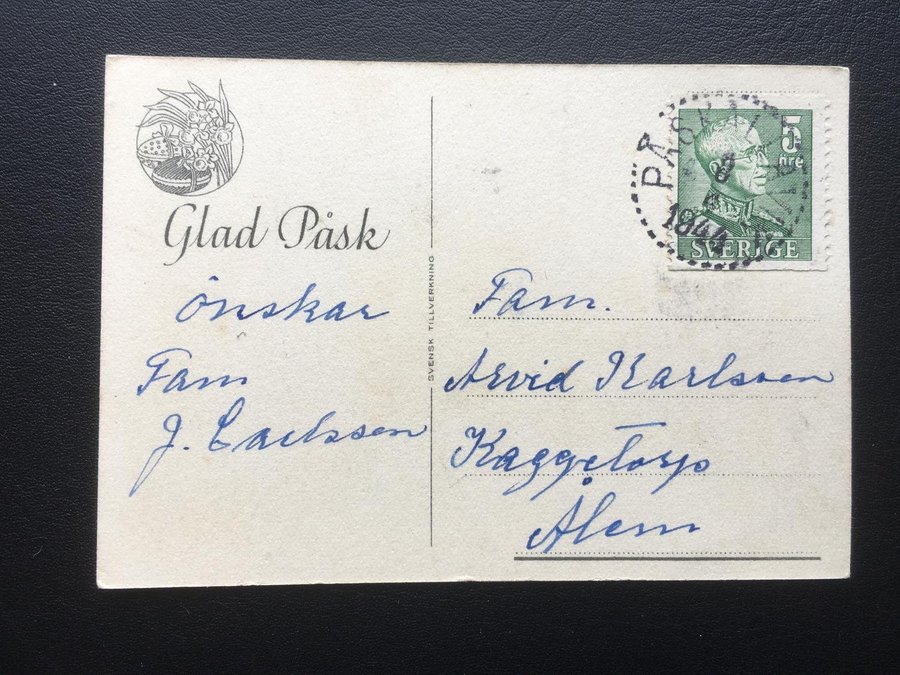 Glad Påsk
önskar
Fam
J. Carlsson
SVENSK TILLVERKNING
5
öre
SVERIGE
1944
Fam.
Arvid Karlsson
Kaggetorp
Ålem